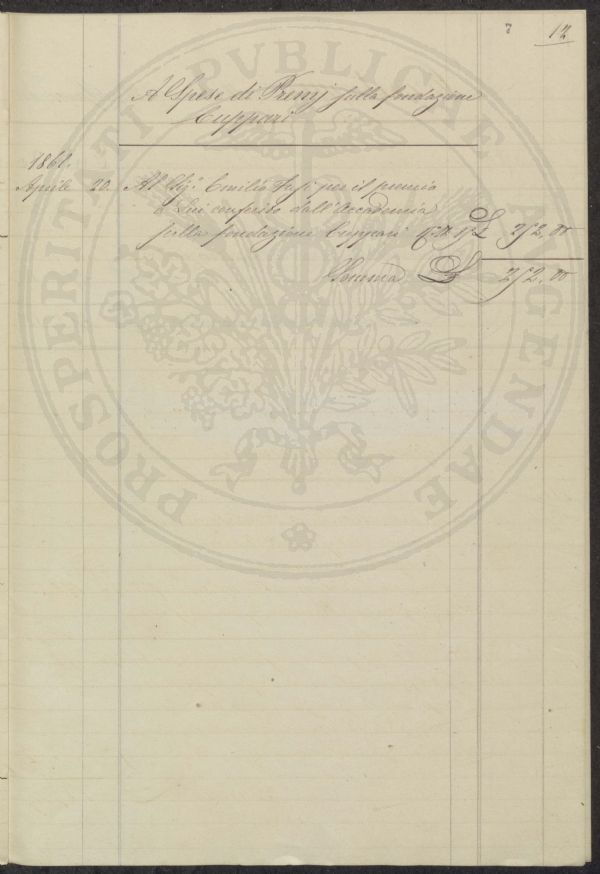 12
A Spese di Premj sulla fondazione
Cuppari
1861.
Aprile 20. Al Sig.r Emilio per il premio
a Lui conferito dall'Accademia
sulla fondazione Cuppari £ 252,00
Somma £ 252,00
PROSPERITATI PVBLICAE AVGENDAE